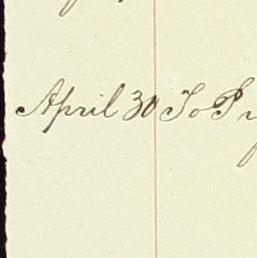 April 30 To P